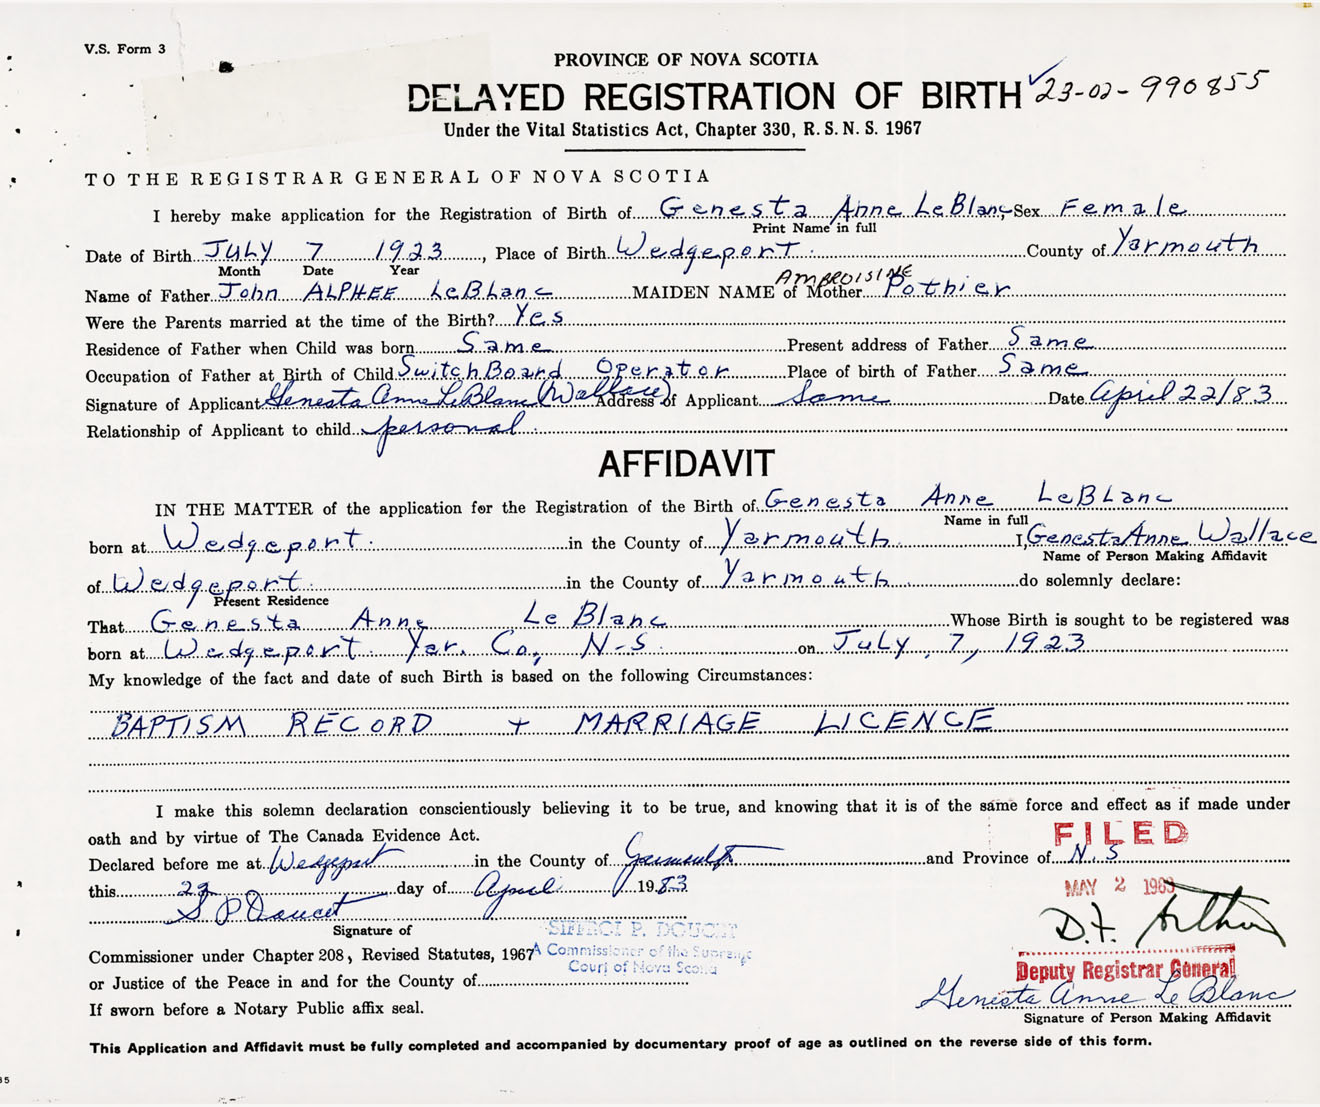 V.S. Form 3
PROVINCE OF NOVA SCOTIA
DELAYED REGISTRATION OF BIRTH ✓23-02-990855
Under the Vital Statistics Act, Chapter 330, R.S.N.S. 1967
TO THE REGISTRAR GENERAL OF NOVA SCOTIA
I hereby make application for the Registration of Birth of Genesta Anne LeBlanc Sex Female
Print Name in full
Date of Birth July 7 1923, Place of Birth Wedgeport. County of Yarmouth
Month Date Year
AMBROISINE
Name of Father John ALPHEE LeBlanc MAIDEN NAME of Mother Pothier
Were the Parents married at the time of the Birth? Yes
Residence of Father when Child was born Same Present address of Father Same
Occupation of Father at Birth of Child SwitchBoard Operator Place of birth of Father Same
Signature of Applicant Genesta Anne LeBlanc (Wallace) Address of Applicant Same Date April 22/83
Relationship of Applicant to child personal
AFFIDAVIT
IN THE MATTER of the application for the Registration of the Birth of Genesta Anne LeBlanc
Name in full
born at Wedgeport. in the County of Yarmouth I, Genesta Anne Wallace
Name of Person Making Affidavit
of Wedgeport. in the County of Yarmouth do solemnly declare:
Present Residence
That Genesta Anne Le Blanc Whose Birth is sought to be registered was
born at Wedgeport Yar. Co., N-S. on July, 7, 1923
My knowledge of the fact and date of such Birth is based on the following Circumstances:
BAPTISM RECORD + MARRIAGE LICENCE
I make this solemn declaration conscientiously believing it to be true, and knowing that it is of the same force and effect as if made under
oath and by virtue of The Canada Evidence Act.
FILED
Declared before me at Wedgeport in the County of Yarmouth and Province of N.S
this 22 day of April 1983
MAY 2 1983
S P Doucet
D.F. Arthur
Signature of
P. DOUCET
Commissioner under Chapter 208, Revised Statutes, 1967
A Commissioner of the Supreme
Court of Nova Scotia
Deputy Registrar General
or Justice of the Peace in and for the County of
Genesta Anne Le Blanc
If sworn before a Notary Public affix seal.
Signature of Person Making Affidavit
This Application and Affidavit must be fully completed and accompanied by documentary proof of age as outlined on the reverse side of this form.